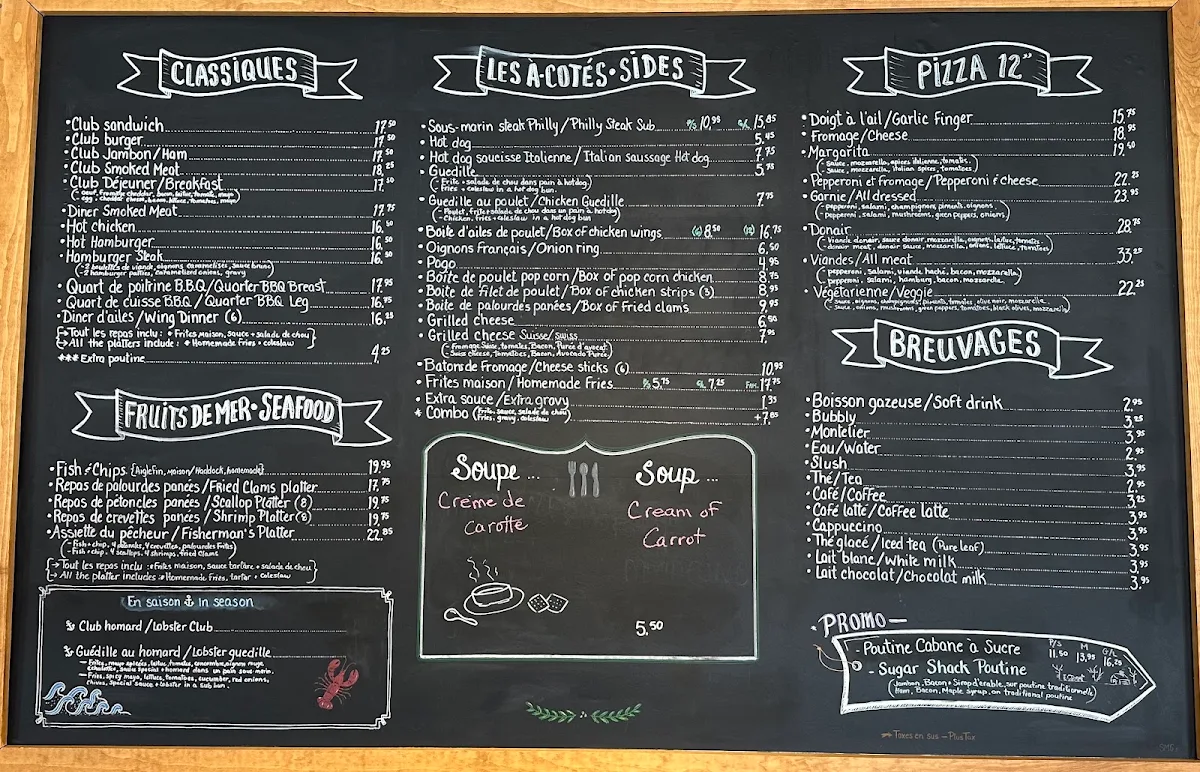 CLASSIQUES
•Club sandwich 17.50
•Club burger 17.50
•Club Jambon/Ham 17.50
•Club Smoked Meat 18.25
•Club Déjeuner/Breakfast 17.50
•Diner Smoked Meat 17.75
•Hot chicken 16.50
•Hot Hamburger 16.50
•Hamburger Steak 16.50
- 2 boulettes de viande, oignons caramélisés, sauce brune
- 2 hamburger patties, caramelized onions, gravy
•Quart de poitrine B.B.Q./Quarter BBQ Breast 17.95
•Quart de cuisse B.B.Q./Quarter BBQ Leg 16.95
•Diner d'ailes/Wing Dinner (6) 16.25
→Tout les repas inclu : • Frites maison, sauce + salade de chou
→All the platters include : • Homemade fries + coleslaw
***Extra poutine 4.25
FRUITS DE MER • SEAFOOD
•Fish & Chips (Aiglefin, maison/Haddock, homemade) 19.95
•Repas de palourdes panées/Fried Clams platter 17.75
•Repas de pétoncles panées/Scallop Platter (8) 19.75
•Repas de crevettes panées/Shrimp Platter (8) 19.75
•Assiette du pêcheur/Fisherman's Platter 22.85
- Fish + chip, 4 scallops, 4 shrimps, fried clams
→Tout les repas inclu : •Frites maison, sauce tartare + salade de chou
→All the platter includes : •Homemade fries, tartar + coleslaw
En saison in season
Club homard/Lobster Club
Guédille au homard/Lobster guedille
- Frites, mayo épicées, laitue, tomates, concombre, oignons rouge,
ciboulette, sauce spécial + homard dans un pain sous-marin.
- Fries, spicy mayo, lettuce, tomatoes, cucumber, red onions,
chives, special sauce + lobster in a sub bun.
LES À-COTÉS • SIDES
•Sous-marin steak Philly/Philly Steak Sub P/s 10.95 G/L 15.85
•Hot dog 5.45
•Hot dog saucisse Italienne/Italian saussage Hot dog 7.75
•Guedille 5.75
- Frite + salade de chou dans pain à hot dog
- Fries + coleslaw in a hot dog bun
•Guedille au poulet/Chicken Guedille 7.75
- Poulet, frite + salade de chou dans un pain à hotdog
- Chicken, fries + coleslaw in a hot dog bun
•Boite d'ailes de poulet/Box of chicken wings (6) 8.50 (12) 16.75
•Oignons Français/Onion ring 6.50
•Pogo 4.95
•Boite de poulet pop corn/Box of pop corn chicken 8.75
•Boite de filet de poulet/Box of chicken strips (3) 8.95
•Boite de palourdes panées/Box of Fried clams 9.95
•Grilled cheese 6.50
•Grilled cheese Suisse/Swiss 7.95
- Fromage Suisse, tomates, Bacon, Purée d'avocat
- Swiss cheese, tomatoes, Bacon, Avocado Puree
•Batons de fromage/Cheese sticks (6) 10.95
•Frites maison/Homemade Fries P/s 5.75 G/L 7.25 Fam. 17.75
•Extra sauce/Extra gravy 1.35
* Combo (Frite, sauce, salade de chou) +7.85
(Fries, gravy, coleslaw)
Soupe ... Soup ...
Crème de Carotte
Cream of Carrot
5.50
PIZZA 12"
•Doigt à l'ail/Garlic Finger 15.75
•Fromage/Cheese 18.95
•Margarita 19.50
- Sauce, mozzarella, épices italienne, tomates
- Sauce, mozzarella, italian spices, tomatoes
•Pepperoni et fromage/Pepperoni & cheese 22.25
•Garnie/All dressed 23.95
- pepperoni, salami, champignons, piments, oignons
- pepperoni, salami, mushrooms, green peppers, onions
•Donair 28.75
- Viande donair, sauce donair, mozzarella, oignons, laitue, tomates
- donair meat, donair sauce, mozzarella, onions, lettuce, tomatoes
•Viandes/All meat 33.25
- pepperoni, salami, viande haché, bacon, mozzarella
- pepperoni, salami, hamburg, bacon, mozzarella
•Végétarienne/Veggie 22.25
- Sauce, oignons, champignons, piments, tomates, olive noir, mozzarella
- Sauce, onions, mushrooms, green peppers, tomatoes, black olives, mozzarella
BREUVAGES
•Boisson gazeuse/Soft drink 2.95
•Bubbly 3.25
•Montelier 3.95
•Eau/water 2.95
•Slush 3.95
•Thé/Tea 2.95
•Café/Coffee 3.95
•Café latte/Coffee latte 3.95
•Cappuccino 3.95
•Thé glacé/Iced tea (Pure leaf) 3.95
•Lait blanc/white milk 3.95
•Lait chocolat/Chocolat milk 3.95
*PROMO—
- Poutine Cabane à Sucre P/s 11.50 M 13.95 G/L 16.25
- Sugar Shack Poutine
(Jambon, Bacon + Sirop d'érable, sur poutine traditionnelle
Ham, Bacon, Maple syrup, on traditional poutine)
Taxes en sus — Plus Tax